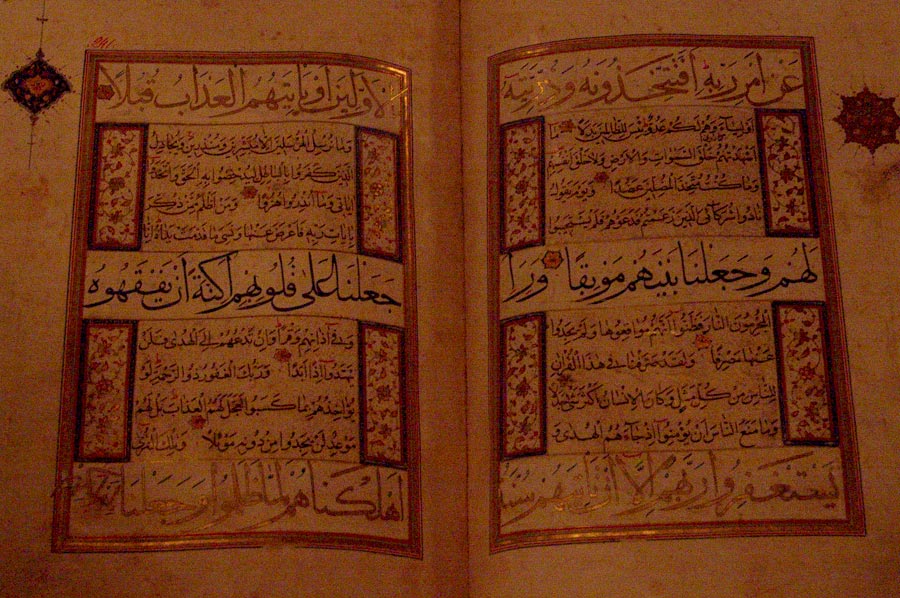 عن أمر ربه أفتتخذونه وذريته
أولياء وهم لكم عدو بئس للظالمين بدلا ما
أشهدتهم خلق السموات والأرض ولا خلق أنفسهم
وما كنت متخذ المضلين عضدا ويوم يقول
نادوا شركائي الذين زعمتم فدعوهم فلم يستجيبوا
لهم وجعلنا بينهم موبقا ورأ
المجرمون النار فظنوا أنهم مواقعوها ولم يجدوا
عنها مصرفا ولقد صرفنا في هذا القرآن
للناس من كل مثل وكان الإنسان أكثر شيء جدلا
وما منع الناس أن يؤمنوا إذ جاءهم الهدى و
يستغفروا ربهم إلا أن تأتيهم سنة
الأولين أو يأتيهم العذاب قبلا
وما نرسل المرسلين إلا مبشرين ومنذرين ويجادل
الذين كفروا بالباطل ليدحضوا به الحق واتخذوا
آياتي وما أنذروا هزوا ومن أظلم ممن ذكر
بآيات ربه فأعرض عنها ونسي ما قدمت يداه إنا
جعلنا على قلوبهم أكنة أن يفقهوه
وفي آذانهم وقرا وإن تدعهم إلى الهدى فلن
يهتدوا إذا أبدا وربك الغفور ذو الرحمة لو
يؤاخذهم بما كسبوا لعجل لهم العذاب بل لهم
موعد لن يجدوا من دونه موئلا وتلك القرى
أهلكناهم لما ظلموا وجعلنا